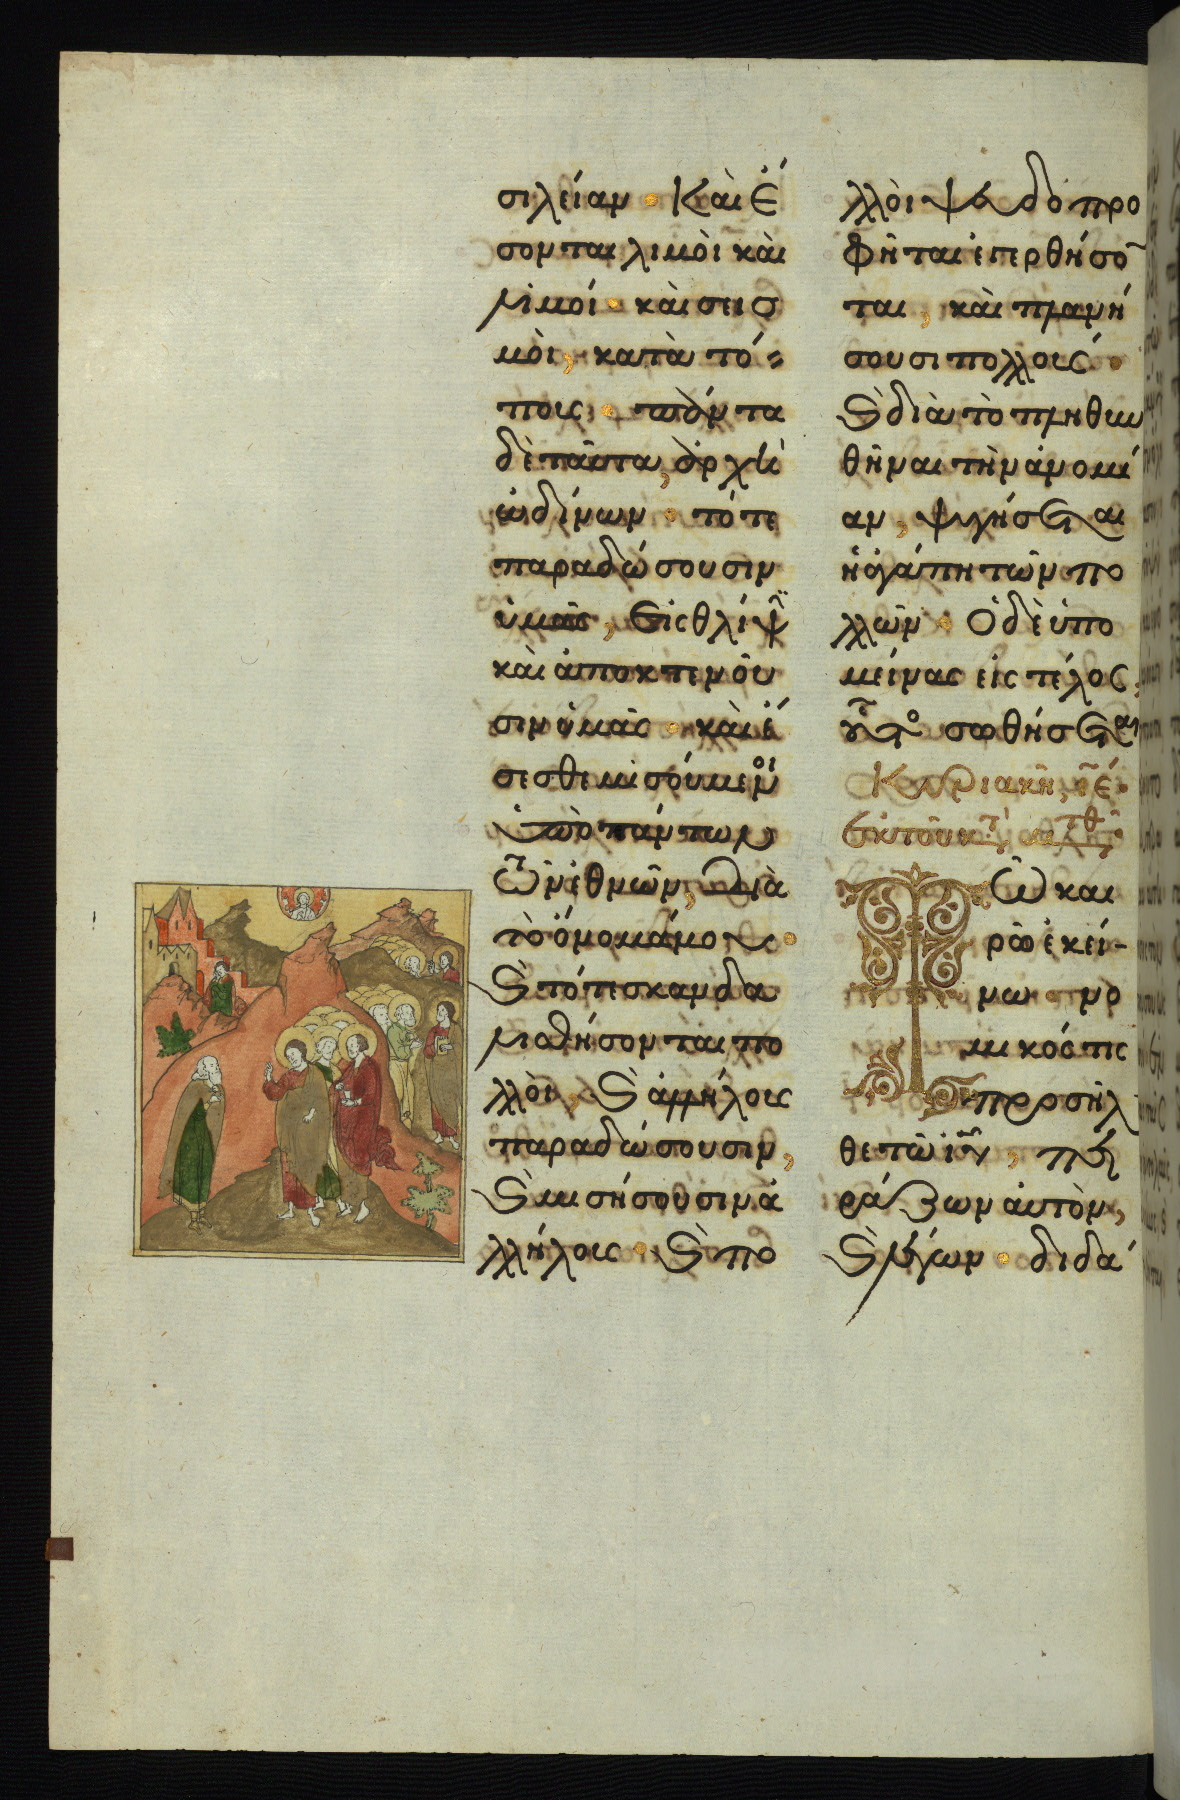 σιλείαν · Καὶ ἔ
σονται λιμοὶ καὶ
λιμοί · καὶ σεισ
μοὶ, κατὰ τό⸗
πους · πάντα
δὲ ταῦτα, ἀρχὴ
ὠδίνων · τότε
παραδώσουσιν
ὑμᾶς, εἰς θλίψ
καὶ ἀποκτενοῦ
σιν ὑμᾶς · καὶ ἔ
σεσθε μισούμενοι
ὑπὸ πάντων
τῶν ἐθνῶν, διὰ
τὸ ὄνομά μου ·
Ϛ τότε σκανδα
λισθήσονται πο
λλοὶ, Ϛ ἀλλήλους
παραδώσουσιν,
Ϛ μισήσουσιν ἀ
λλήλους · Ϛ πο
λλοὶ ψευδοπρο
φῆται ἐγερθήσο
ται, καὶ πλανή
σουσι πολλούς ·
Ϛ διὰ τὸ πληθυν
θῆναι τὴν ἀνομί
αν, ψυγήσεται
ἡ ἀγάπη τῶν πο
λλῶν · Ὁ δὲ ὑπο
μείνας εἰς τέλος,
οὗτο σωθήσεται
Κυριακῆ, ιε ·
Τῶ και
ρῶ ἐκεί-
νω · νο
μικός τις
προσῆλ
θε τῶ ιυ, πει
ράζων αὐτὸν,
Ϛ λέγων · διδά